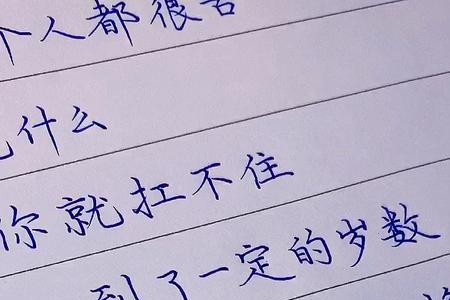 个人都很苦
什么
你就扛不住
到了一定的岁数